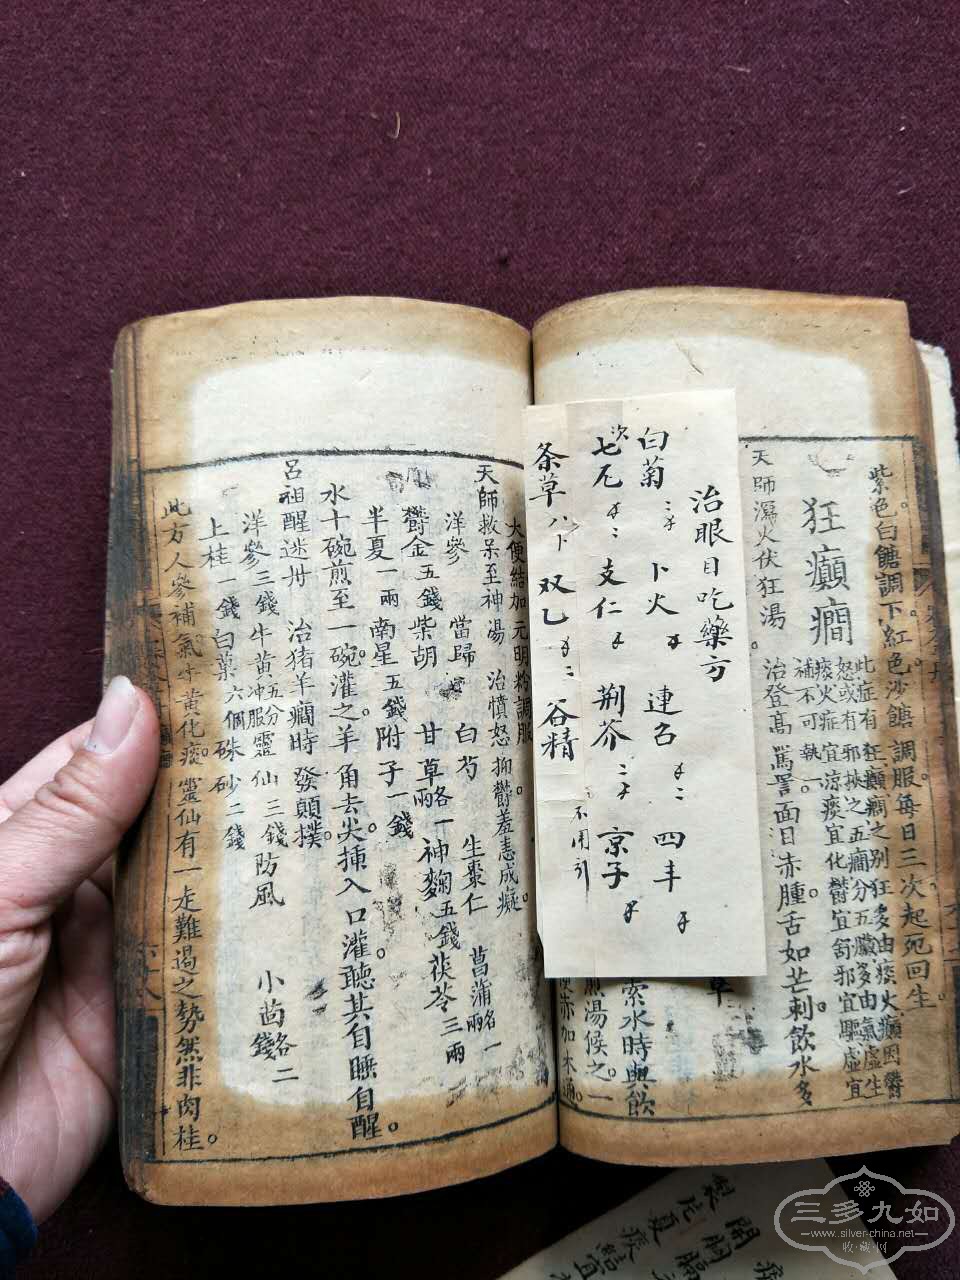 紫色白餹調下。紅色沙餹調服每日三次起死回生。
狂癲癎
此症有狂癲癎之别狂多由痰火癲因鬱
怒或有邪挾之五癎分五臟多由氣虛生
痰火症宜涼痰宜化鬱宜舒邪宜驅虛宜
補不可執一。
天師瀉火伏狂湯。治登高罵詈面目赤腫。舌如芒刺飲水多
草
索水時與飲
煎湯候之。一
便赤加木通。
治眼目吃藥方
白菊 卜火 連召 四丰
次七元 支仁 荆芥 京子
条草 双乙 谷精
不用引
大便結加元明粉調服。
天師救呆至神湯 治憤怒抑鬱羞恚成癡。
洋參 當歸 白芍 生棗仁 菖蒲各一兩
鬱金五錢柴胡 甘草各一兩神麯五錢茯苓三兩
半夏一兩南星五錢附子一錢
水十碗煎至一碗。灌之。羊角去尖。揷入口灌。聽其自睡自醒。
呂祖醒迷丹 治猪羊癎時發顛撲。
洋參三錢牛黄五分冲服靈仙三錢防風 小茴各二錢
上桂一錢白菓六個硃砂二錢
此方人參補氣。牛黄化痰。靈仙有一走難遏之勢然非肉桂。
六十八
製半夏
開胸膈
三多九如
www.silver-china.net
收藏网